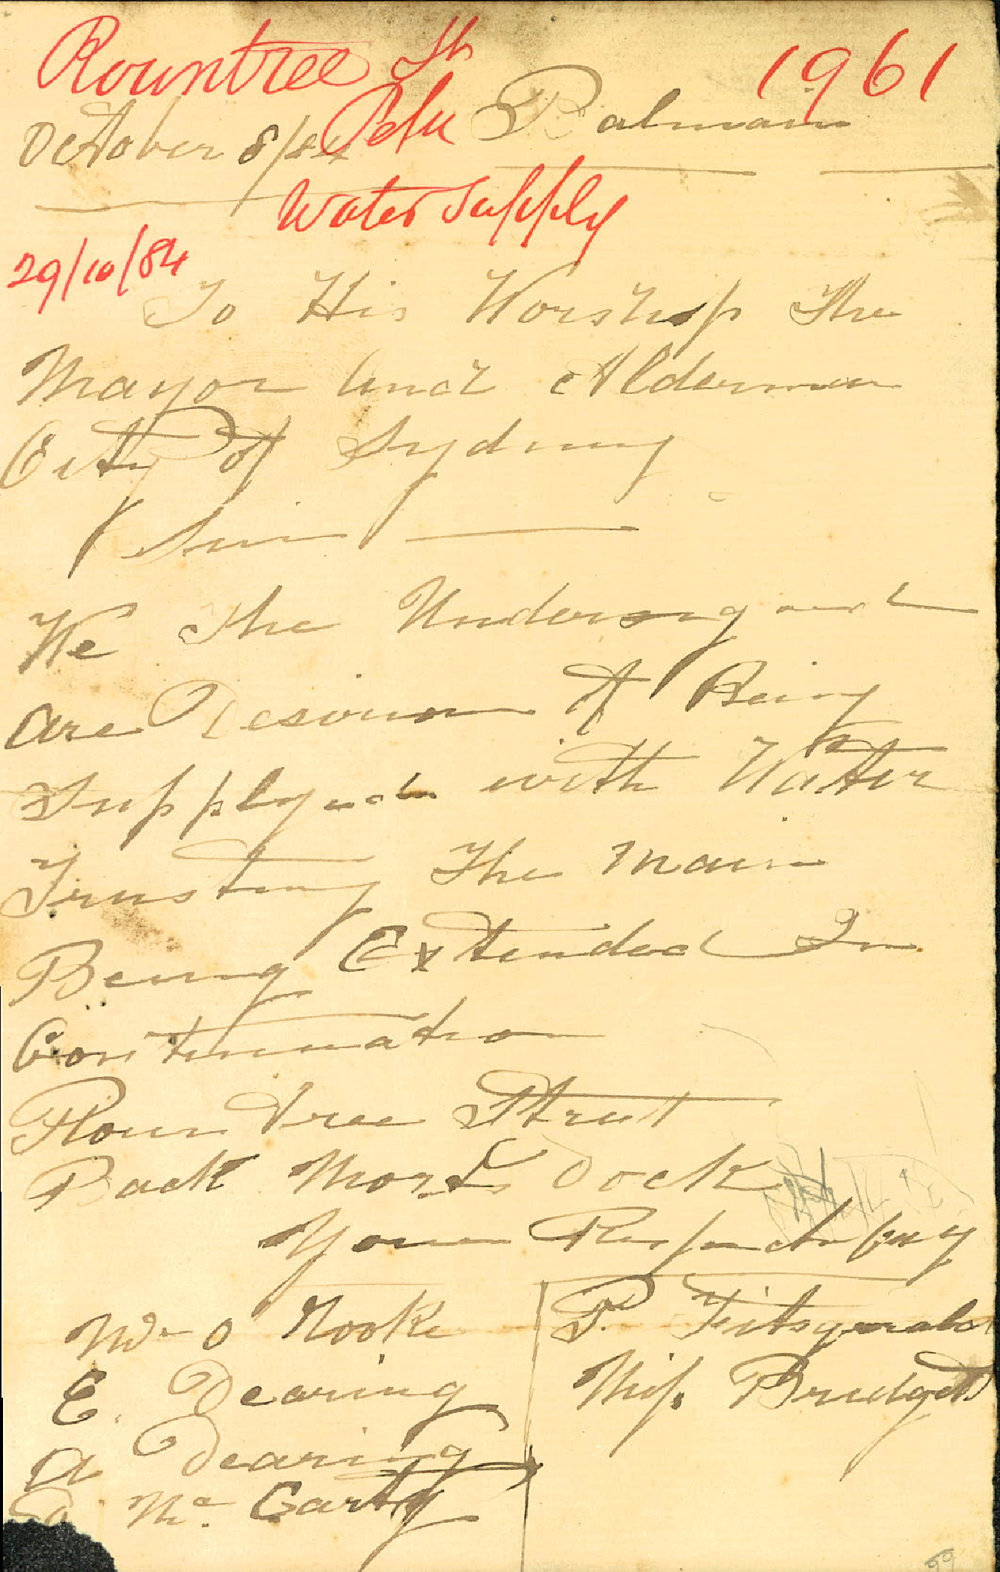 Rountree St 1961
October 8/84 Petn Balmain
Water Supply
29/10/84
To His Worship The
Mayor and Aldermen
City of Sydney
Sir
We The Undersigned
are Desirous of Being
Supplyed with Water
Trusting The Main
Being Extended In
Continuation
Rountree Street
Back Morts Dock
Yours Respectfuly
Wm O Rooke
E. Dearing
A Dearing
Mc. Carty
P. Fitsgerald
Miss Bridgett